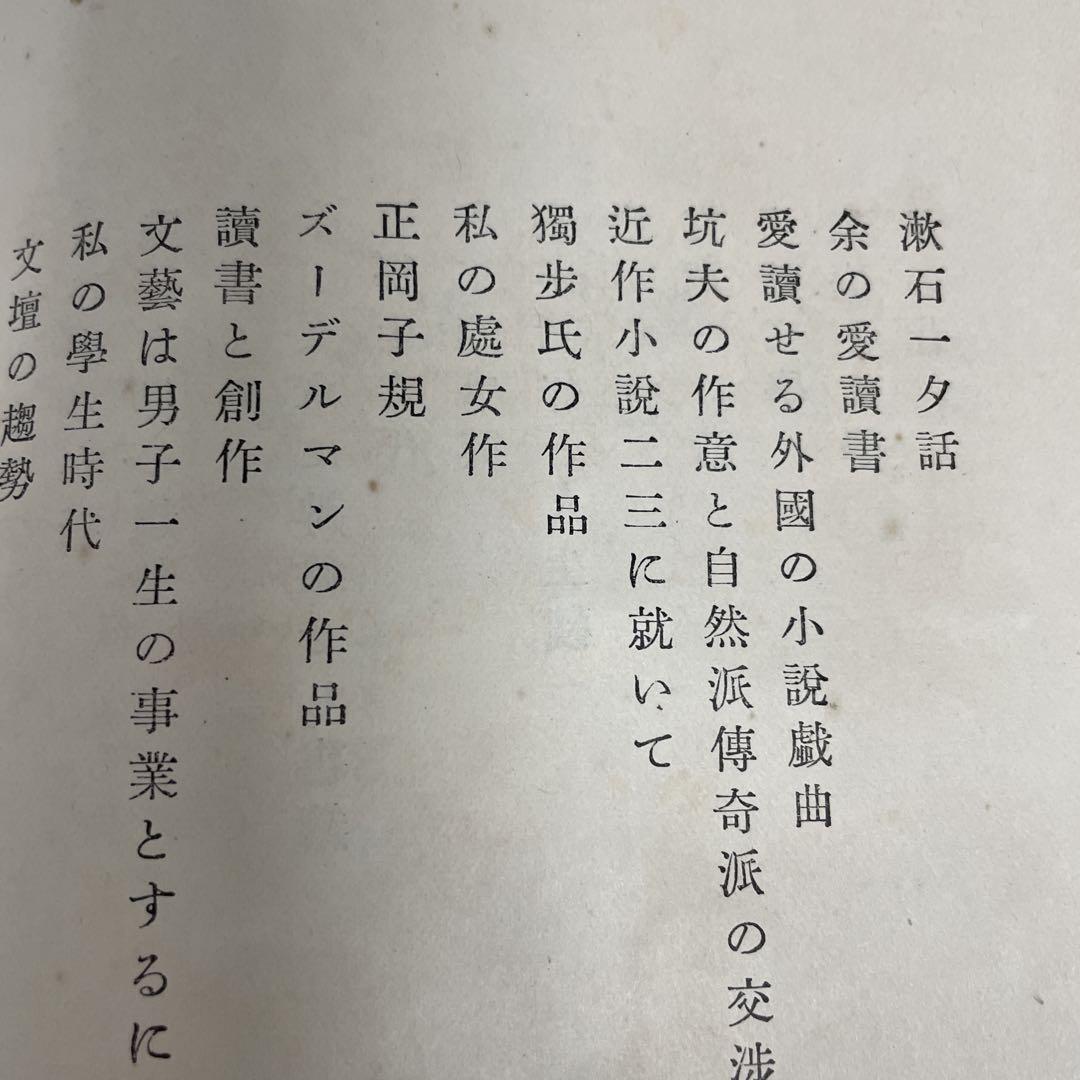 漱石一夕話
余の愛讀書
愛讀せる外國の小說戯曲
坑夫の作意と自然派傳奇派の交渉
近作小說二三に就いて
獨步氏の作品
私の處女作
正岡子規
ズーデルマンの作品
讀書と創作
文藝は男子一生の事業とするに
私の學生時代
文壇の趨勢